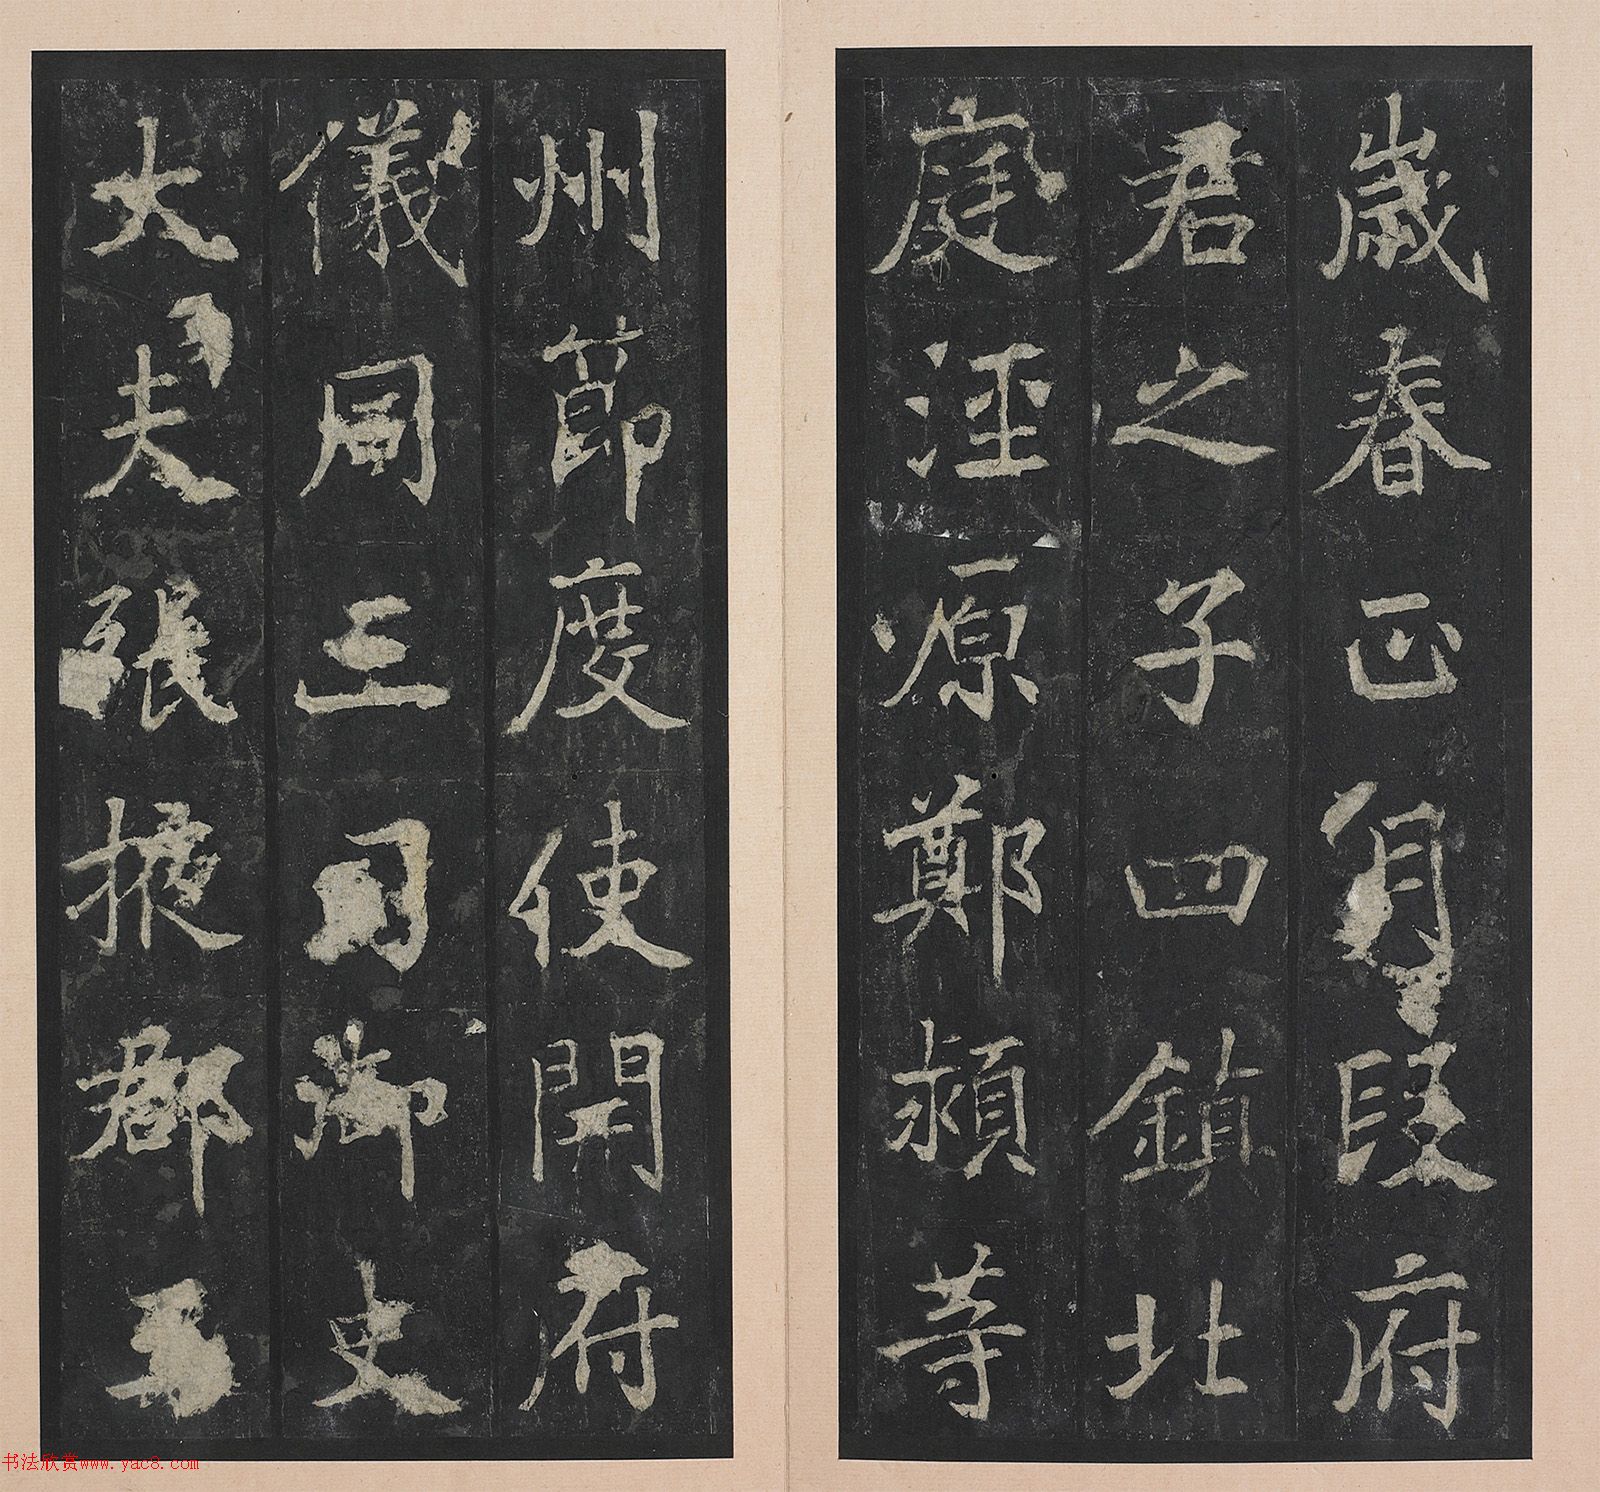 歲春正月段府
君之子四鎮北
庭涇原鄭潁等
州節度使開府
儀同三司御史
大夫張掖郡王
书法欣赏www.yac8.com